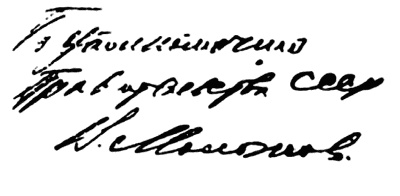 По уполномочию
Правительства СССР
В. Молотов.